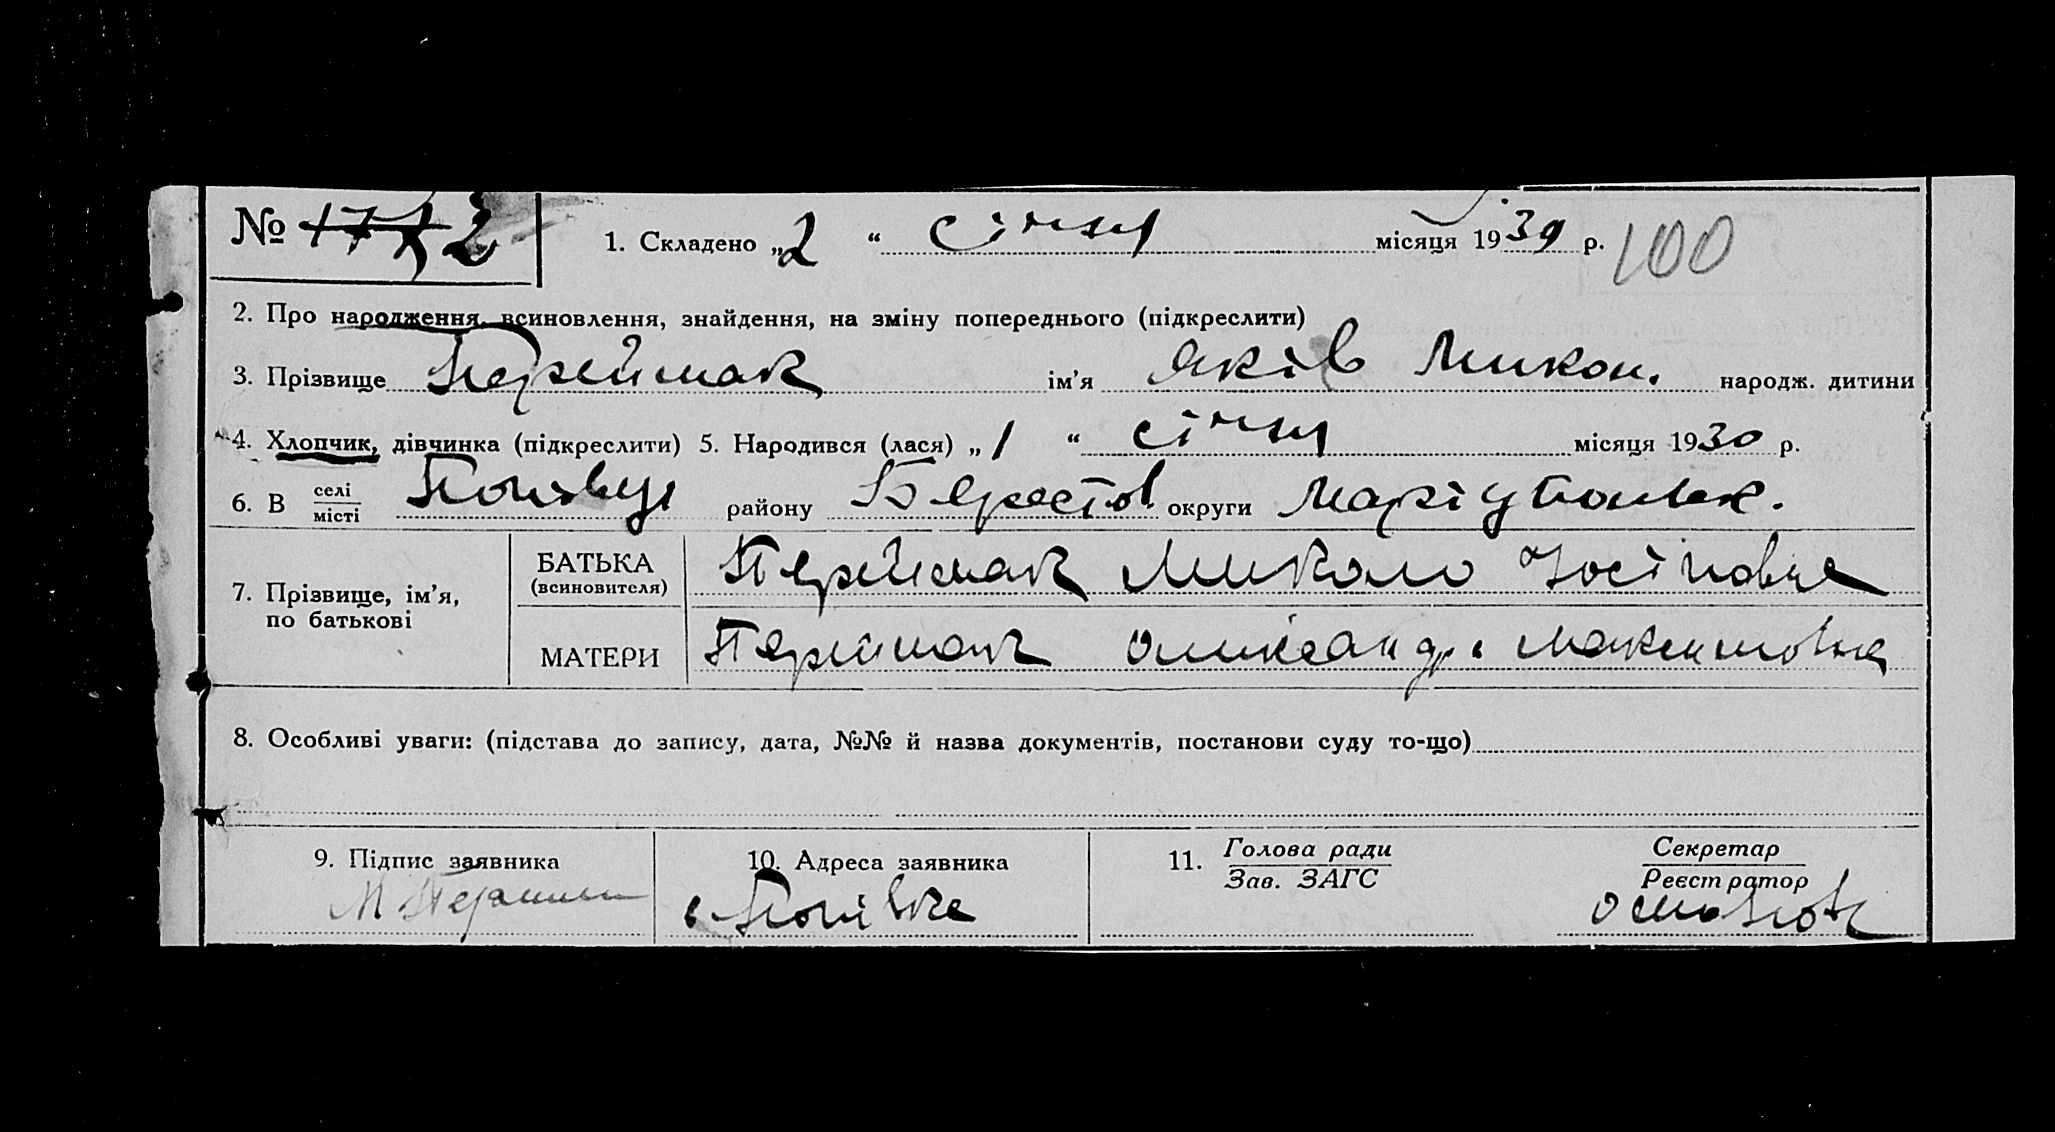 № 2
1. Складено „2“ січня місяця 1930 р. 100
2. Про народження, всиновлення, знайдення, на зміну попереднього (підкреслити)
3. Прізвище Переймак ім’я Яків Микол. народж. дитини
4. Хлопчик, дівчинка (підкреслити) 5. Народився (лася) „1“ січня місяця 1930 р.
6. В селі місті району Берестов округи Маріупольск.
7. Прізвище, ім’я, по батькові
БАТЬКА (всиновителя) Переймак Микола Йосіпович
МАТЕРИ Переймак Олександра Максимовна
8. Особливі уваги: (підстава до запису, дата, №№ й назва документів, постанови суду то-що)
9. Підпис заявника
10. Адреса заявника
11. Голова ради
Зав. ЗАГС
Секретар
Реєстратор